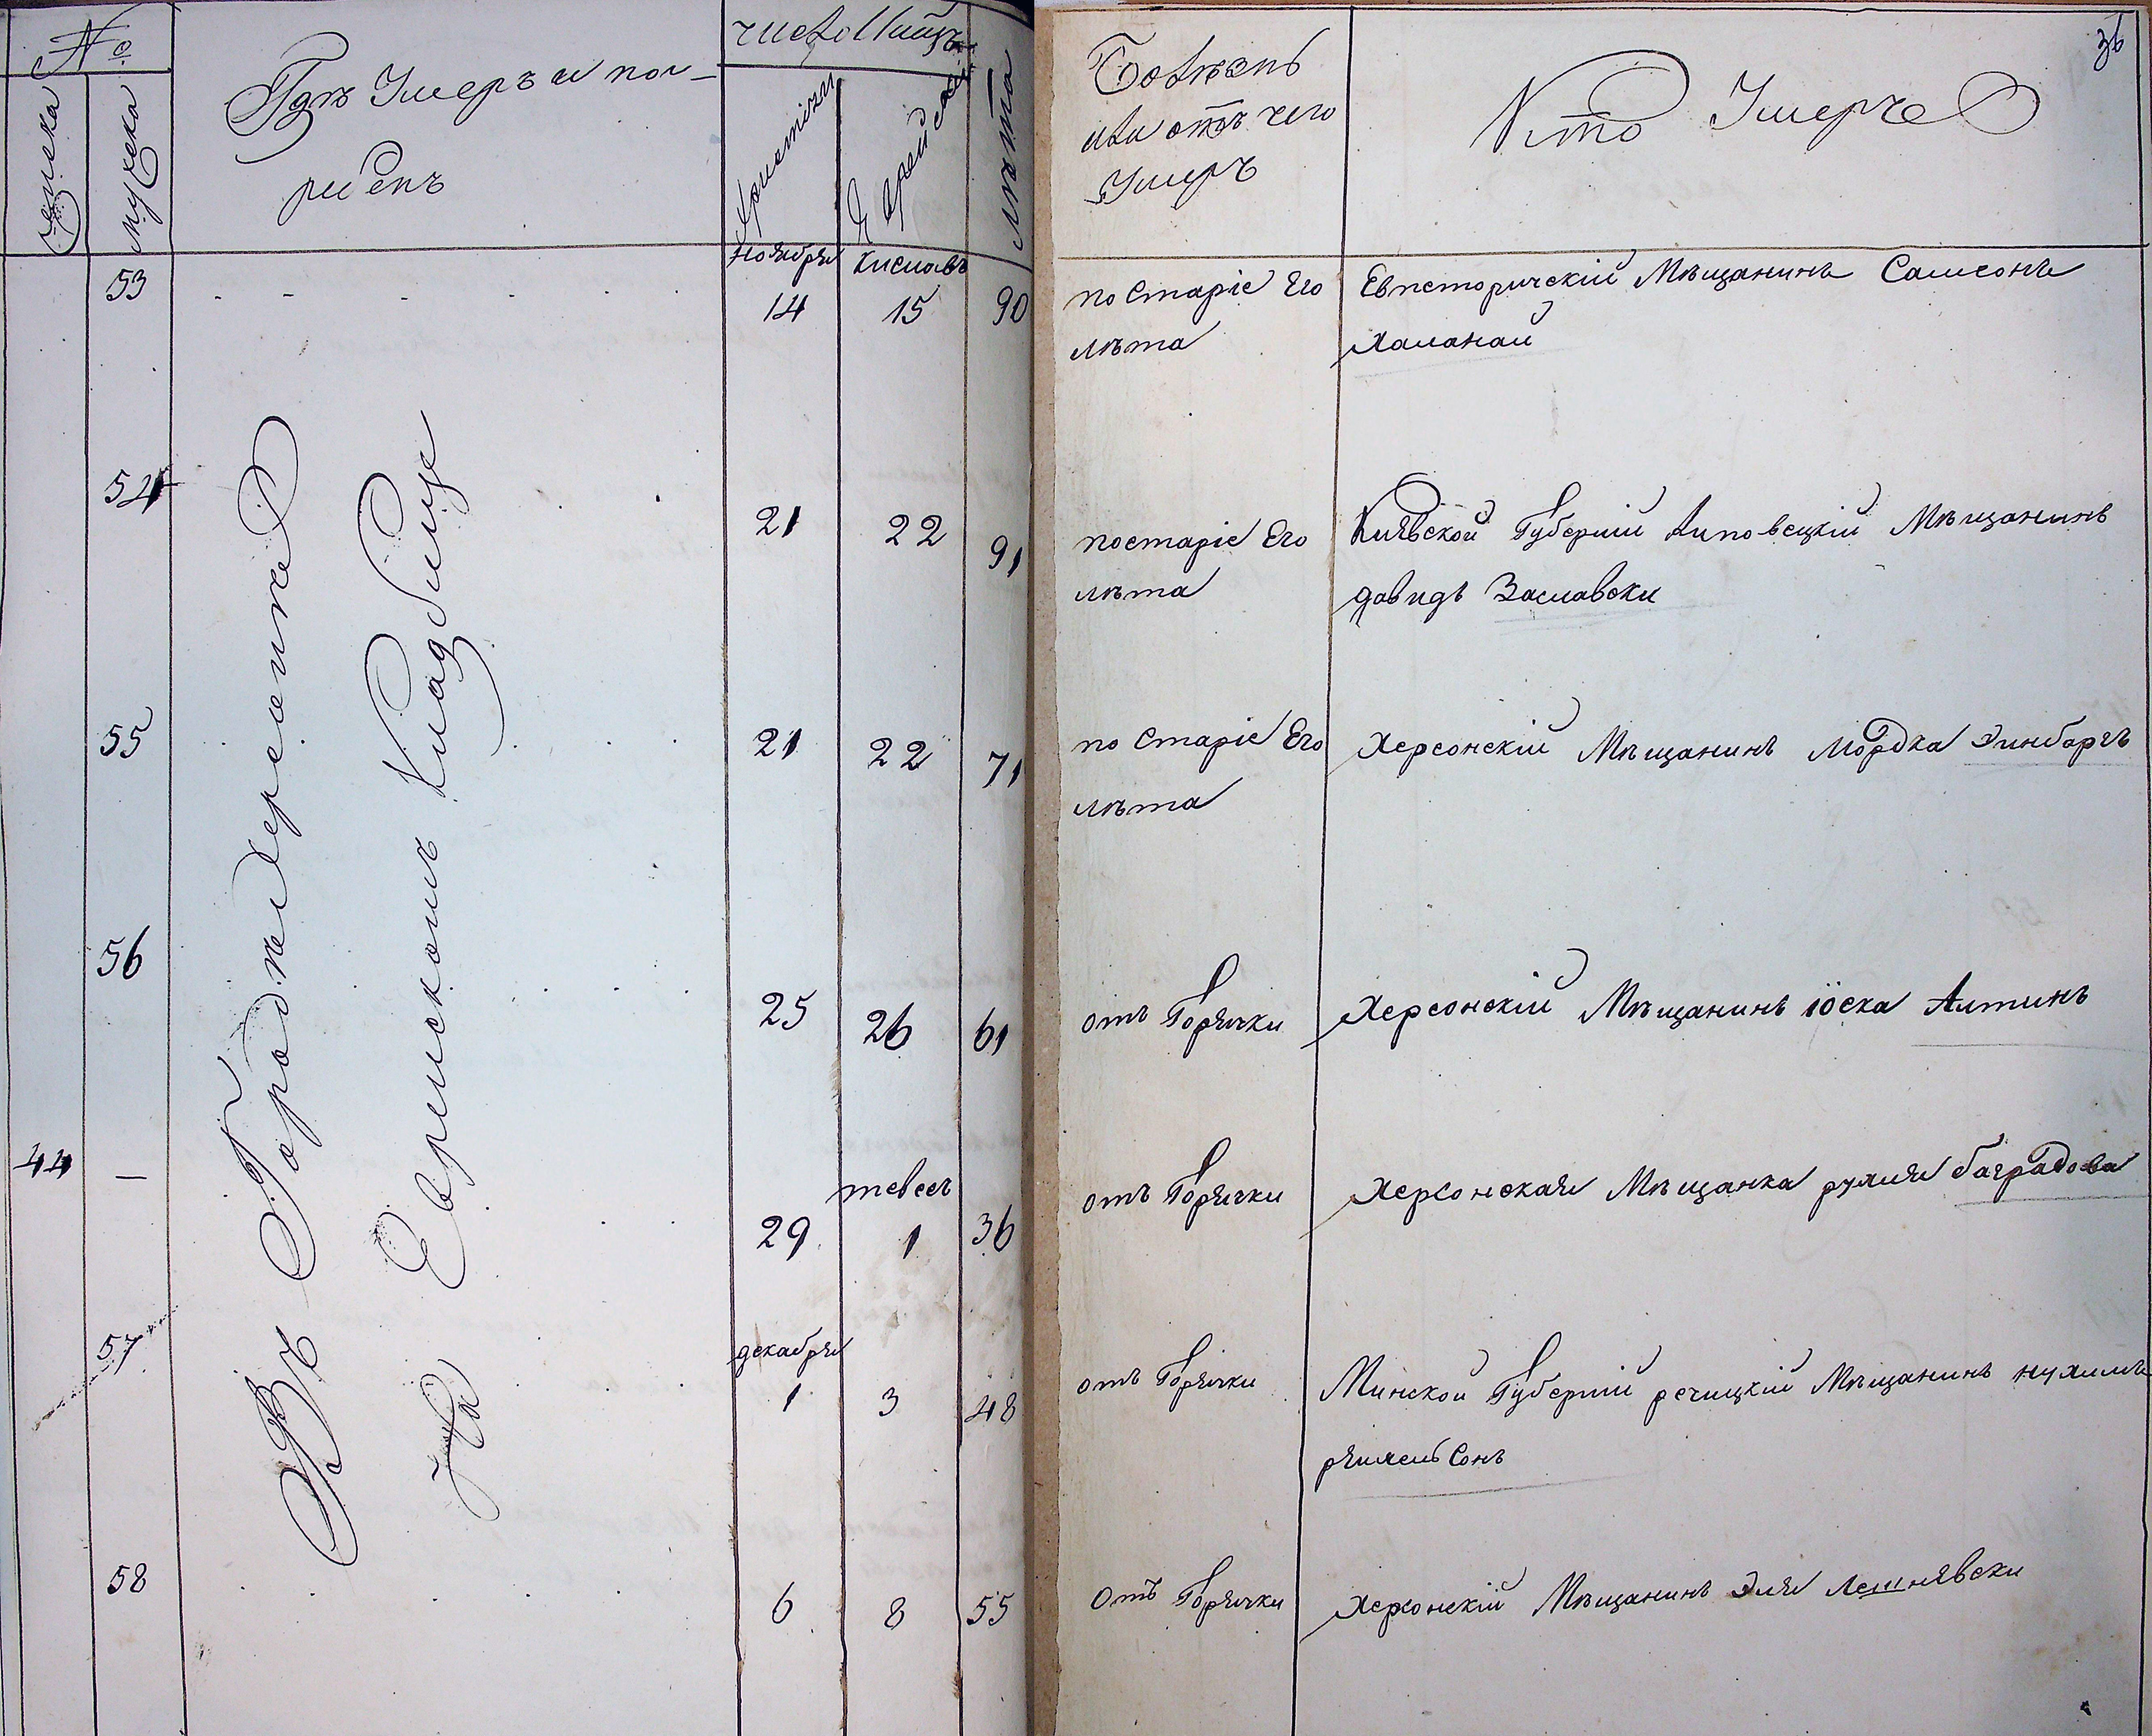 №
женска
мужеска
Гдѣ Умеръ и пог-
ребенъ
число Мѣсяцъ
Христіан
Еврейской
Лѣта
Болѣзнь
или отъ чего
Умеръ
Кто Умерче
36
ноября киславъ
53 14 15 90 по Старіе Его Евпеторическій Мѣщанинъ Самсонъ
лѣта Халанай
54 21 22 91 по старіе Его Киявской Губерніи Липовецкій Мѣщанинъ
лѣта давидъ Заславски
55 21 22 71 по Старіе Его Херсонскій Мѣщанинъ Мордка Эинбаргъ
лѣта
56 25 26 61 отъ Горячки Херсонскій Мѣщанинъ іоска Алтинъ
тевесъ
44 — 29 1 36 отъ Горячки Херсонская Мѣщанка рухля баградова
декабря
57 1 3 48 отъ Горячки Минской Губерніи речицкій Мѣщанинъ нухимъ
58 6 8 55 Отъ Горячки Херсонскій Мѣщанинъ Эля Лешнявски
Въ Городѣ Херсонѣ
на Еврейскомъ Кладбище